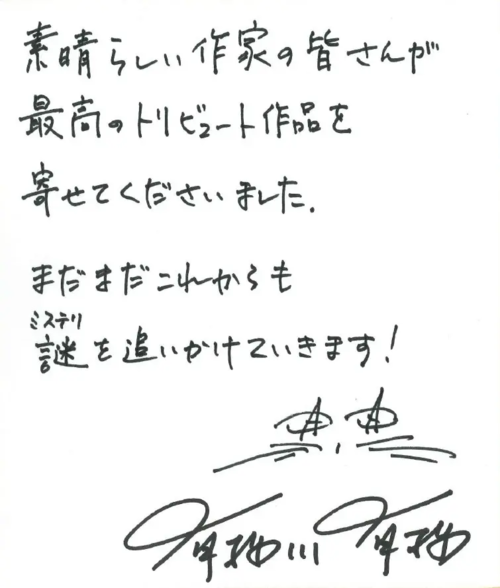 素晴らしい作家の皆さんが
最高のトリビュート作品を
寄せてくださいました.
まだまだこれからも
ミステリ
謎を追いかけていきます!
有栖川有栖